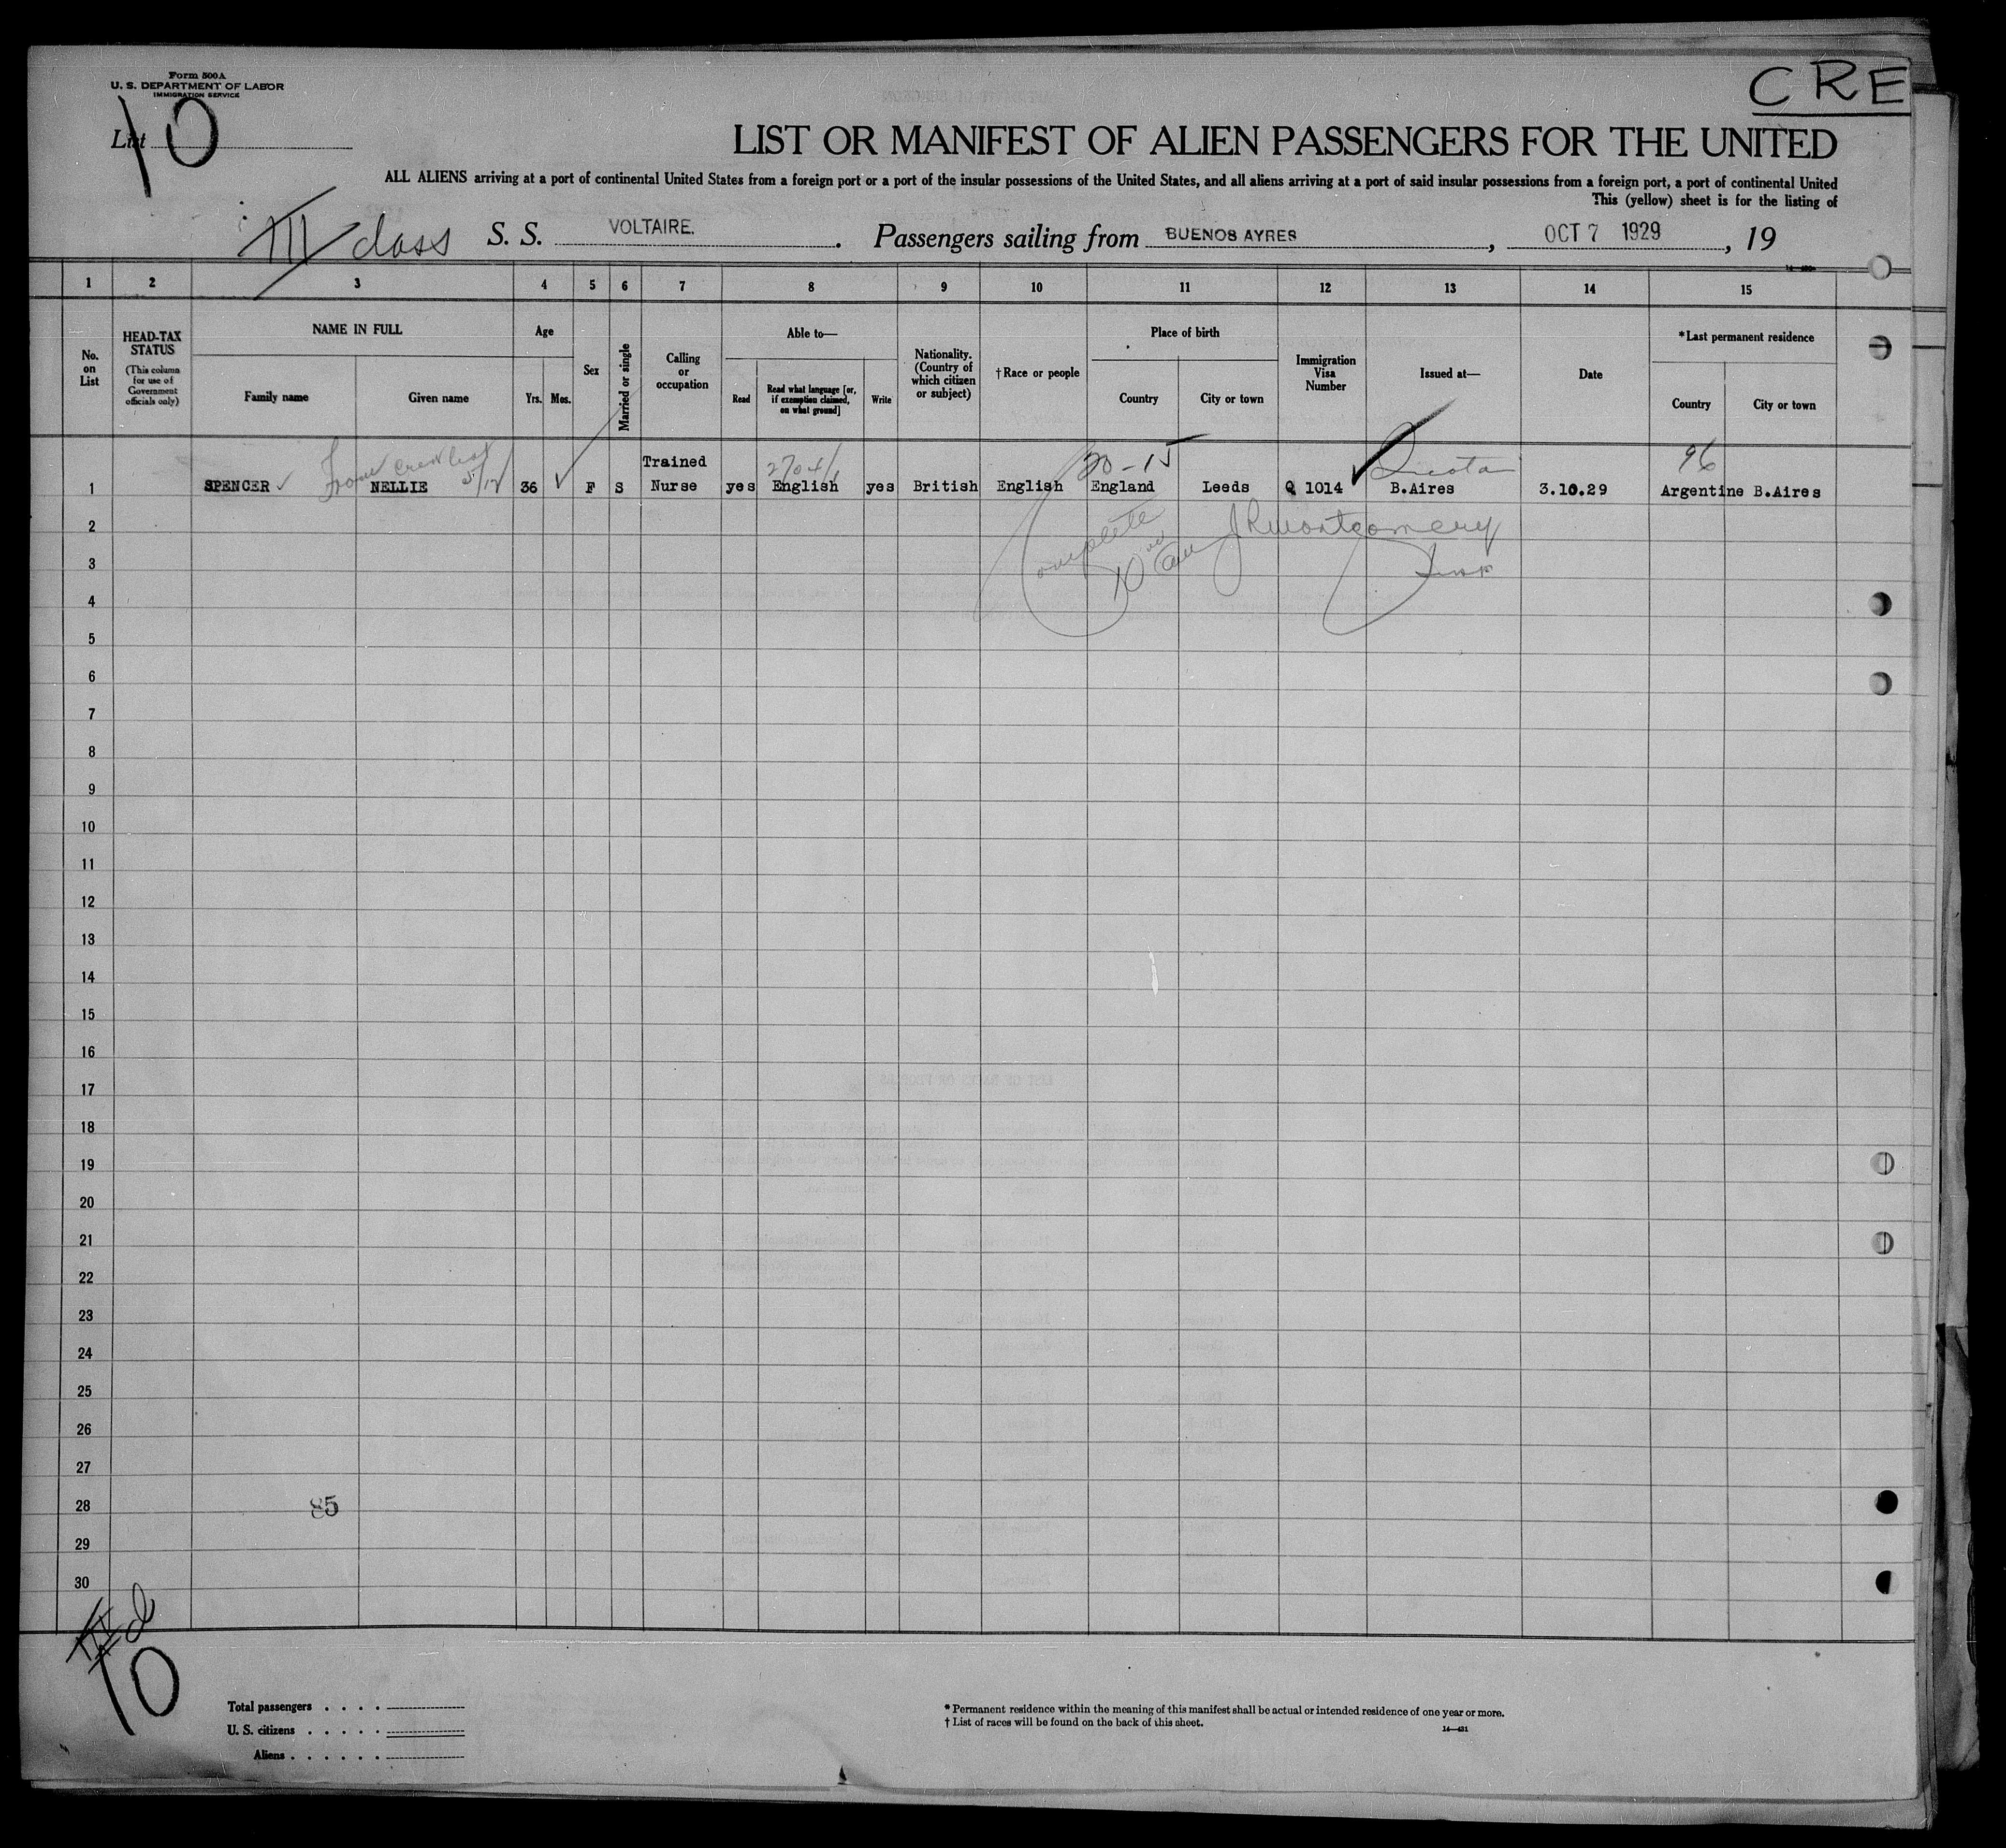 Form 500A
U. S. DEPARTMENT OF LABOR
IMMIGRATION SERVICE
CRE
List 10
LIST OR MANIFEST OF ALIEN PASSENGERS FOR THE UNITED
ALL ALIENS arriving at a port of continental United States from a foreign port or a port of the insular possessions of the United States, and all aliens arriving at a port of said insular possessions from a foreign port, a port of continental United
This (yellow) sheet is for the listing of
III class S. S. VOLTAIRE. Passengers sailing from BUENOS AYRES, OCT 7 1929, 19
1 2 3 4 5 6 7 8 9 10 11 12 13 14 15
No. on List
HEAD-TAX STATUS
(This column for use of Government officials only)
NAME IN FULL
Family name
Given name
Age
Yrs.
Mos.
Sex
Married or single
Calling or occupation
Able to—
Read
Read what language [or, if exemption claimed, on what ground]
Write
Nationality. (Country of which citizen or subject)
†Race or people
Place of birth
Country
City or town
Immigration Visa Number
Issued at—
Date
*Last permanent residence
Country
City or town
From crew list 5/12
2704/1
30-15
Quota
96
1 SPENCER NELLIE 36 F S Trained Nurse yes English yes British English England Leeds Q 1014 B.Aires 3.10.29 Argentine B.Aires
Complete
JRMontgomery
Insp
2
3
4
5
6
7
8
9
10
11
12
13
14
15
16
17
18
19
20
21
22
23
24
25
26
27
28 85
29
30
10
Total passengers
U. S. citizens
Aliens
* Permanent residence within the meaning of this manifest shall be actual or intended residence of one year or more.
† List of races will be found on the back of this sheet.
14—431